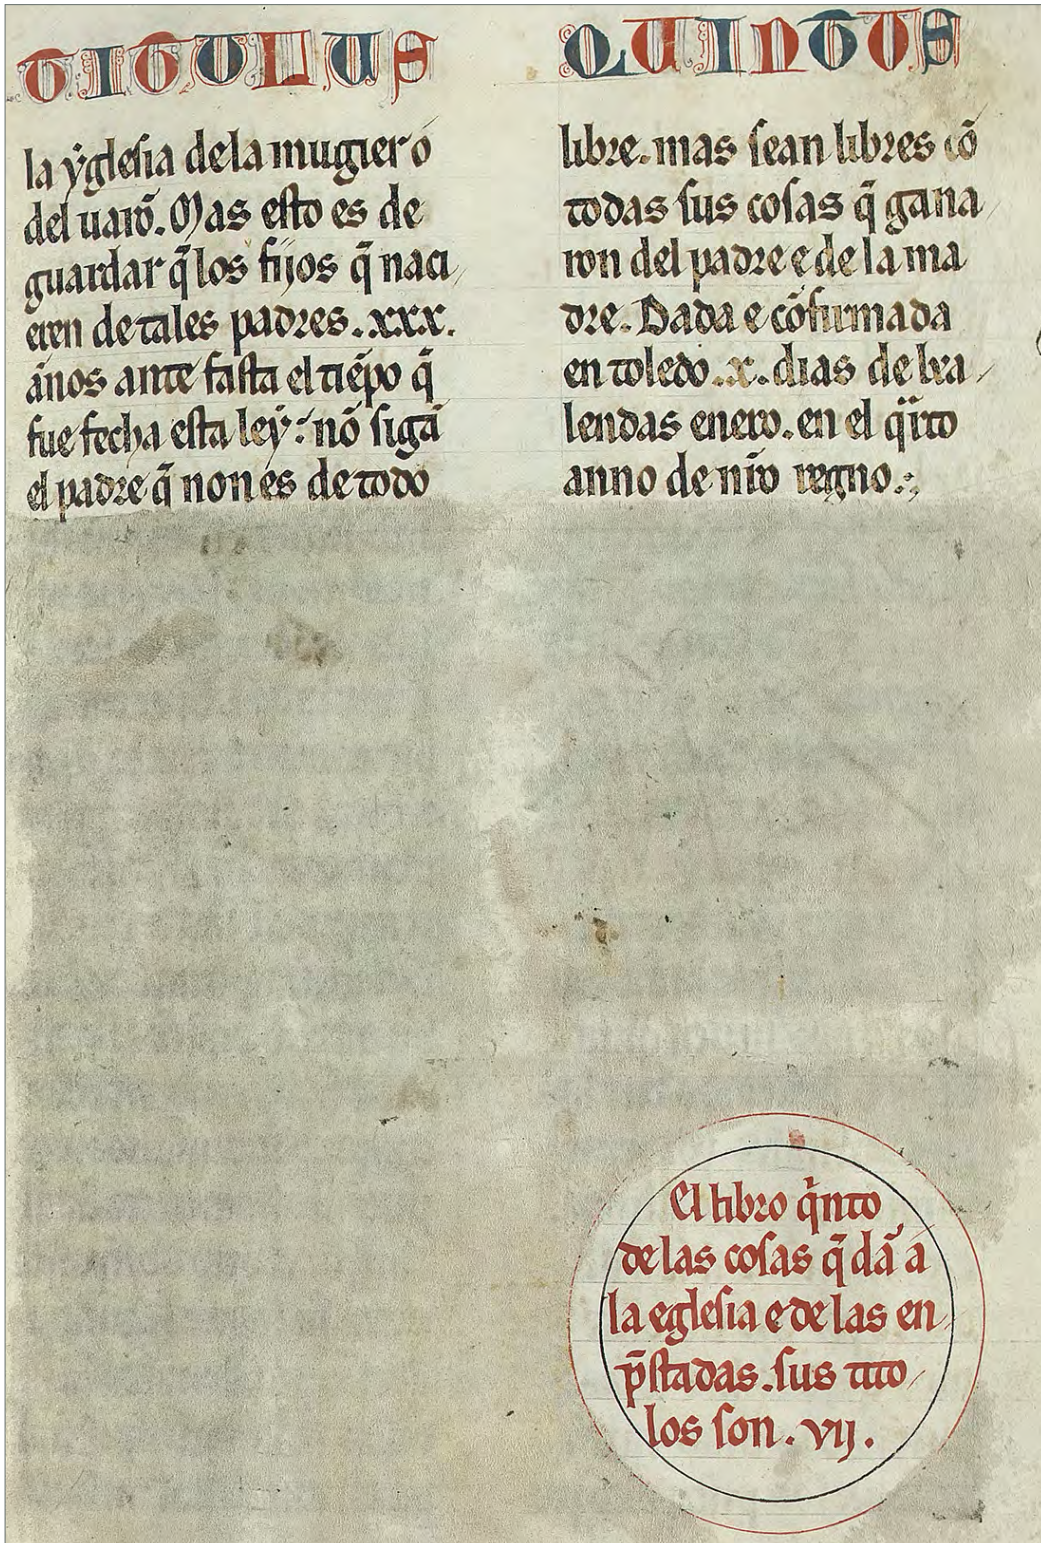 TITULUS QUINTUS
la ẏglesia dela mugier o
del uarõ. Mas esto es de
guardar q̃ los fijos q̃ naci
eren de tales padres .xxx.
ãnos ante fasta el tiẽpo q̃
fue fecha esta leẏ: nõ sigã
el padre q̃ non es de todo
libre. mas sean libres cõ
todas sus cosas q̃ gana
ron del padre e de la ma
dre. Dada e cõfirmada
en toledo .x. dias de ka
lendas enero. en el q̃rto
anno de nr̃o regno.
El libro q̃nto
de las cosas q̃ dã a
la eglesia e de las en
p̃stadas. sus tito
los son. vij.